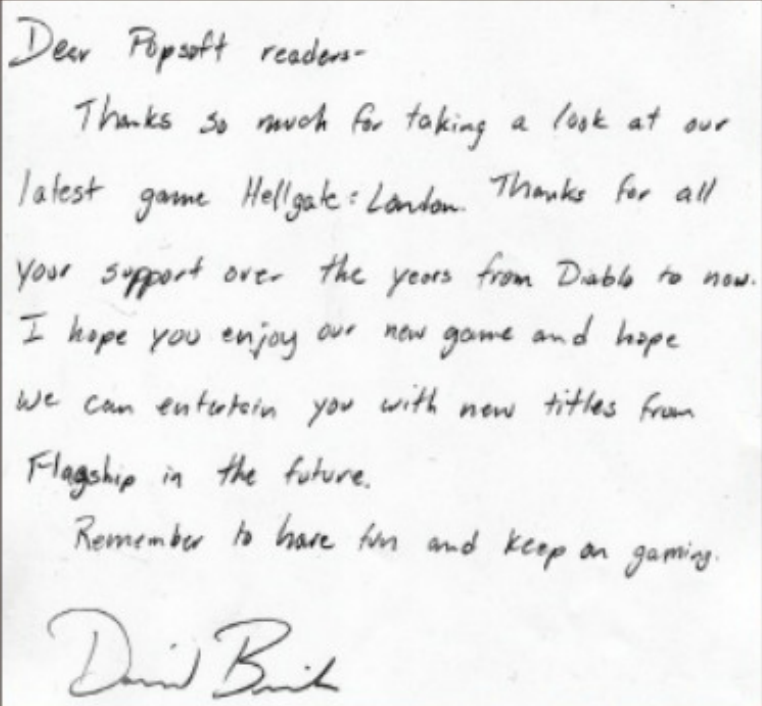 Dear Popsoft readers-
Thanks so much for taking a look at our
latest game Hellgate: London. Thanks for all
your support over the years from Diablo to now.
I hope you enjoy our new game and hope
we can entertain you with new titles from
Flagship in the future.
Remember to have fun and keep on gaming.
David